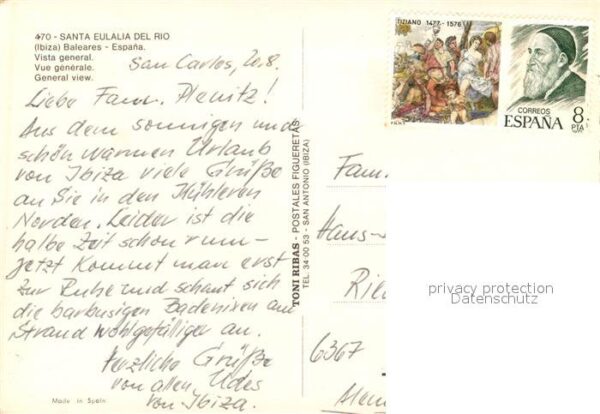 470 - SANTA EULALIA DEL RIO
(Ibiza) Baleares - España.
Vista general.
Vue générale.
General view.
San Carlos, 20.8.
Liebe Fam. Plenitz!
Aus dem sonnigen und
schön warmen Urlaub
von Ibiza viele Grüße
an Sie in den kühleren
Norden. Leider ist die
halbe Zeit schon rum -
jetzt kommt man erst
zur Ruhe und schaut sich
die barbusigen Badenixen am
Strand wohlgefälliger an.
Herzliche Grüße
von allen Udes
von Ibiza.
Made in Spain
TONI RIBAS - POSTALES FIGUERETAS
TEL. 34 00 53 - SAN ANTONIO (IBIZA)
TIZIANO 1477 - 1576
CORREOS
ESPAÑA
8
PTA
Fam.
Hans-
Ried
6367
privacy protection
Datenschutz